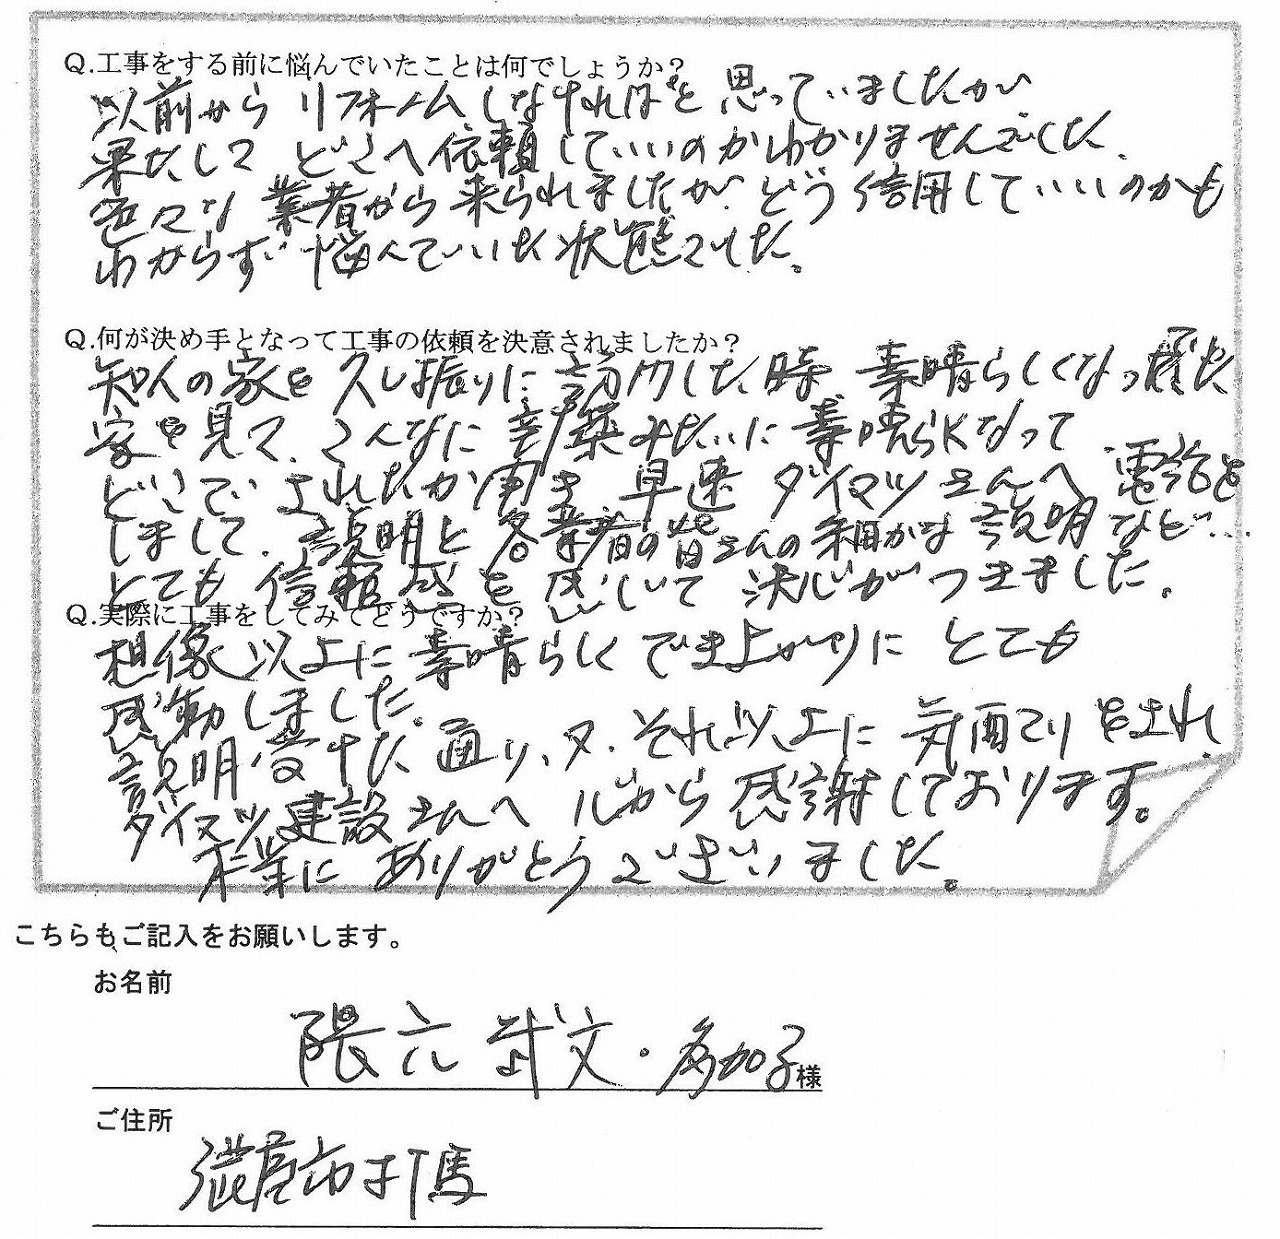 Q.工事をする前に悩んでいたことは何でしょうか?
以前から リフォームしなければと 思っていましたが
果たして どこへ依頼していいのかわかりませんでした、
色々な 業者から来られましたが、どう信用していいのかも
わからず 悩んでいた状態でした。
Q.何が決め手となって工事の依頼を決意されましたか?
知人の家を 久し振りに訪問した時 素晴らしくなっ
家を見て、こんなに新築みたいに素晴らしくなって
されたか聞き 早速 ダイマツさんへ 電話を
しまして、説明と 各業者の皆さんの細かな説明など…
とても 信頼感を 感じて 決心がつきました。
Q.実際に工事をしてみてどうですか?
想像以上に素晴らしくでき上がりに とても
感動しました。
説明受けた 通り、又、それ以上に 気配りをされ
ダイマツ建設さんへ 心から 感謝しております。
本当に ありがとうございました。
こちらもご記入をお願いします。
お名前
武文・多加子様
ご住所